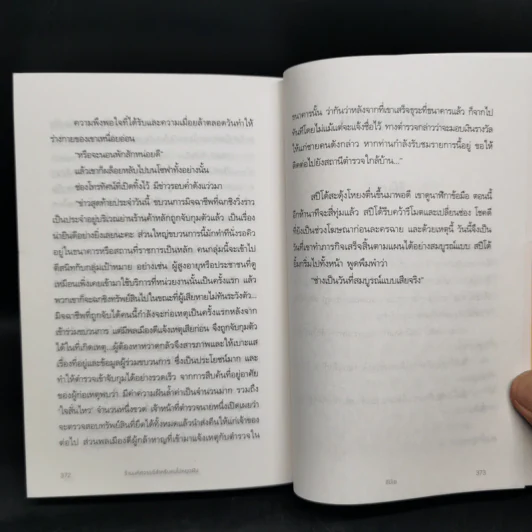 ความพึงพอใจที่ได้รับและความเมื่อยล้าตลอดวันทำให้
ร่างกายของเขาเหนื่อยอ่อน
"หรือจะนอนพักสักหน่อยดี"
แล้วเขาก็เลื้อยหลับไปบนโซฟาทั้งอย่างนั้น
ช่องโทรทัศน์ที่เปิดทิ้งไว้ มีข่าวรอบค่ำดังแว่วมา
"ข่าวสุดท้ายประจำวันนี้ ขบวนการมิจฉาชีพที่แกชิงวิ่งราว
เป็นประจำอยู่บริเวณย่านร้านค้าหลักถูกจับกุมตัวแล้ว เป็นเรื่อง
น่ายินดีอย่างยิ่งเลยนะคะ ส่วนใหญ่ขบวนการนี้มักทำทีนั่งรอคิว
อยู่ในธนาคารหรือสถานที่ราชการเป็นหลัก คนกลุ่มนี้จะเข้าไป
ตีสนิทกับกลุ่มเป้าหมาย อย่างเช่น ผู้สูงอายุหรือประชาชนที่ดู
เหมือนเพิ่งเคยเข้ามาใช้บริการที่หน่วยงานนั้นเป็นครั้งแรก แล้ว
พวกเขาก็จะฉกชิงทรัพย์สินไปในขณะที่ผู้เสียหายไม่ทันระวังตัว...
มิจฉาชีพที่ถูกจับได้คนนี้กำลังจะก่อเหตุเป็นครั้งแรกหลังจาก
เข้าร่วมขบวนการ แต่มีพลเมืองดีแจ้งเหตุเสียก่อน จึงถูกจับกุมตัว
ได้ในที่เกิดเหตุ...ผู้ต้องหาหวาดกลัวจึงสารภาพและให้เบาะแส
เรื่องที่อยู่และข้อมูลผู้ร่วมขบวนการ ซึ่งเป็นประโยชน์มาก และ
ทำให้ตำรวจเข้าจับกุมได้อย่างรวดเร็ว จากการสืบค้นที่อยู่อาศัย
ของผู้ก่อเหตุพบว่า มีค่าความฝันล้ำค่าเป็นจำนวนมาก รวมถึง
'ใจสั่นไหว' จำนวนหนึ่งขวด เจ้าหน้าที่ตำรวจนายหนึ่งเปิดเผยว่า
จะตรวจสอบทรัพย์สินที่ยึดได้ทั้งหมดแล้วนำส่งคืนให้แก่เจ้าของ
ต่อไป ส่วนพลเมืองดีผู้กล้าหาญที่เข้ามาแจ้งเหตุกับตำรวจใน
ธนาคารนั้น ว่ากันว่าหลังจากที่เขาเสร็จธุระที่ธนาคารแล้ว ก็จากไป
ทันทีโดยไม่แม้แต่จะแจ้งชื่อไว้ ทางตำรวจกล่าวว่าจะมอบเงินรางวัล
ให้แก่ชายคนดังกล่าว หากท่านกำลังรับชมรายการนี้อยู่ ขอให้
ติดต่อไปยังสถานีตำรวจใกล้บ้าน..."
สปีโด้สะดุ้งโหยงตื่นขึ้นมาพอดี เขาดูนาฬิกาข้อมือ ตอนนี้
อีกห้านาทีจะสี่ทุ่มแล้ว สปีโด้รีบคว้ารีโมตและเปลี่ยนช่อง โชคดี
ที่ยังเป็นช่วงโฆษณาก่อนละครฉาย และด้วยเหตุนี้ วันนี้จึงเป็น
วันที่เขาทำภารกิจเสร็จสิ้นตามแผนได้อย่างสมบูรณ์แบบ สปีโด้
ยิ้มกริ่มไปทั้งหน้า พูดพึมพำว่า
"ช่างเป็นวันที่สมบูรณ์แบบเสียจริง"